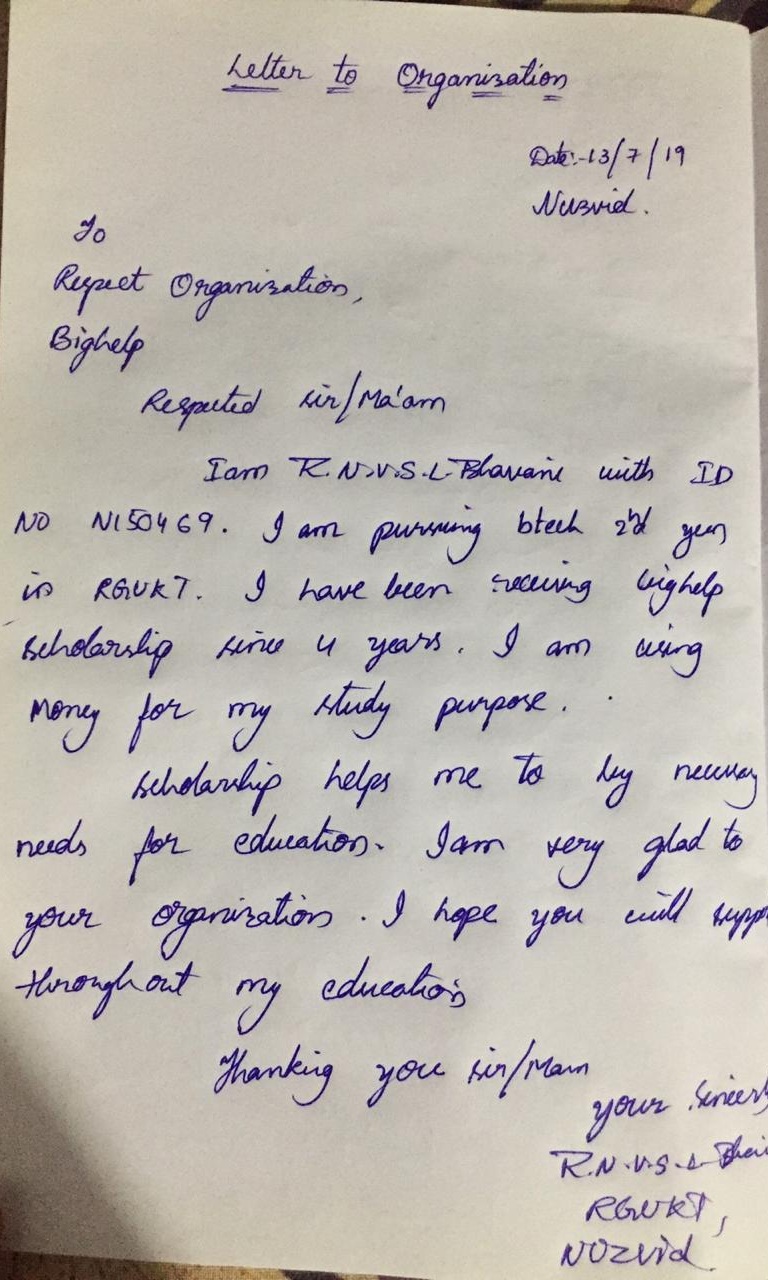 Letter to Organization
Date:-13/7/19
Nuzvid.
To
Respect Organization,
Bighelp
Respected sir/Ma'am
I am R.N.V.S.L Bhavani with ID
NO N150469. I am pursuing btech 2nd year
in RGUKT. I have been receiving bighelp
scholarship since 4 years. I am using
money for my study purpose.
scholarship helps me to buy necessay
needs for education. I am very glad to
your organization. I hope you will suppo
throughout my education
Thanking you sir/Mam
your sincerly
R.N.V.S.L
RGUKT,
NUZVID.